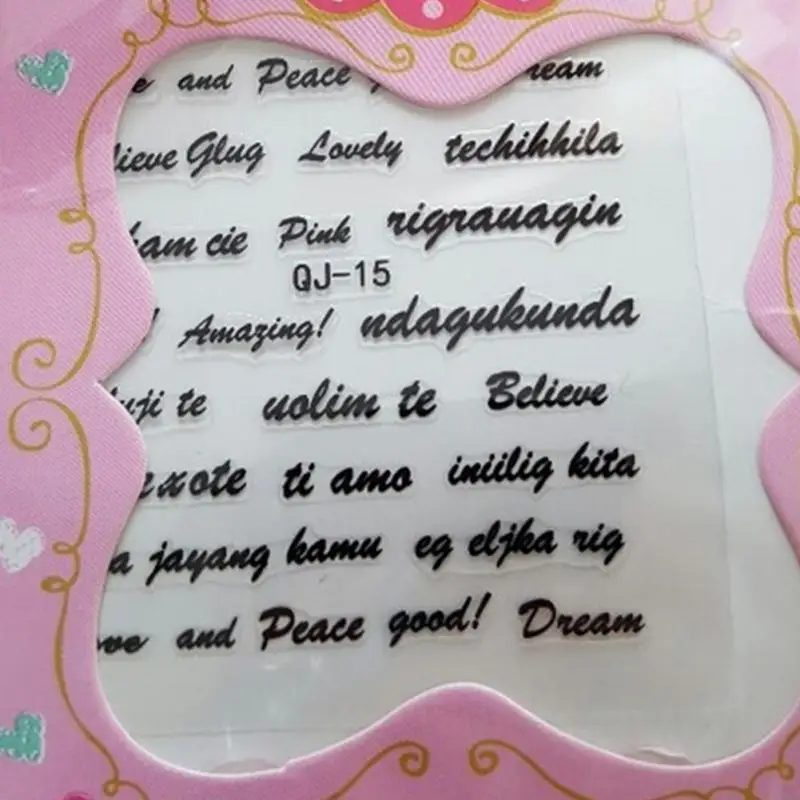 and Peace
Glug Lovely techihhila
cie Pink rigrauagin
QJ-15
Amazing! ndagukunda
te uolim te Believe
ti amo iniilig kita
jayang kamu eg eljka rig
and Peace good! Dream